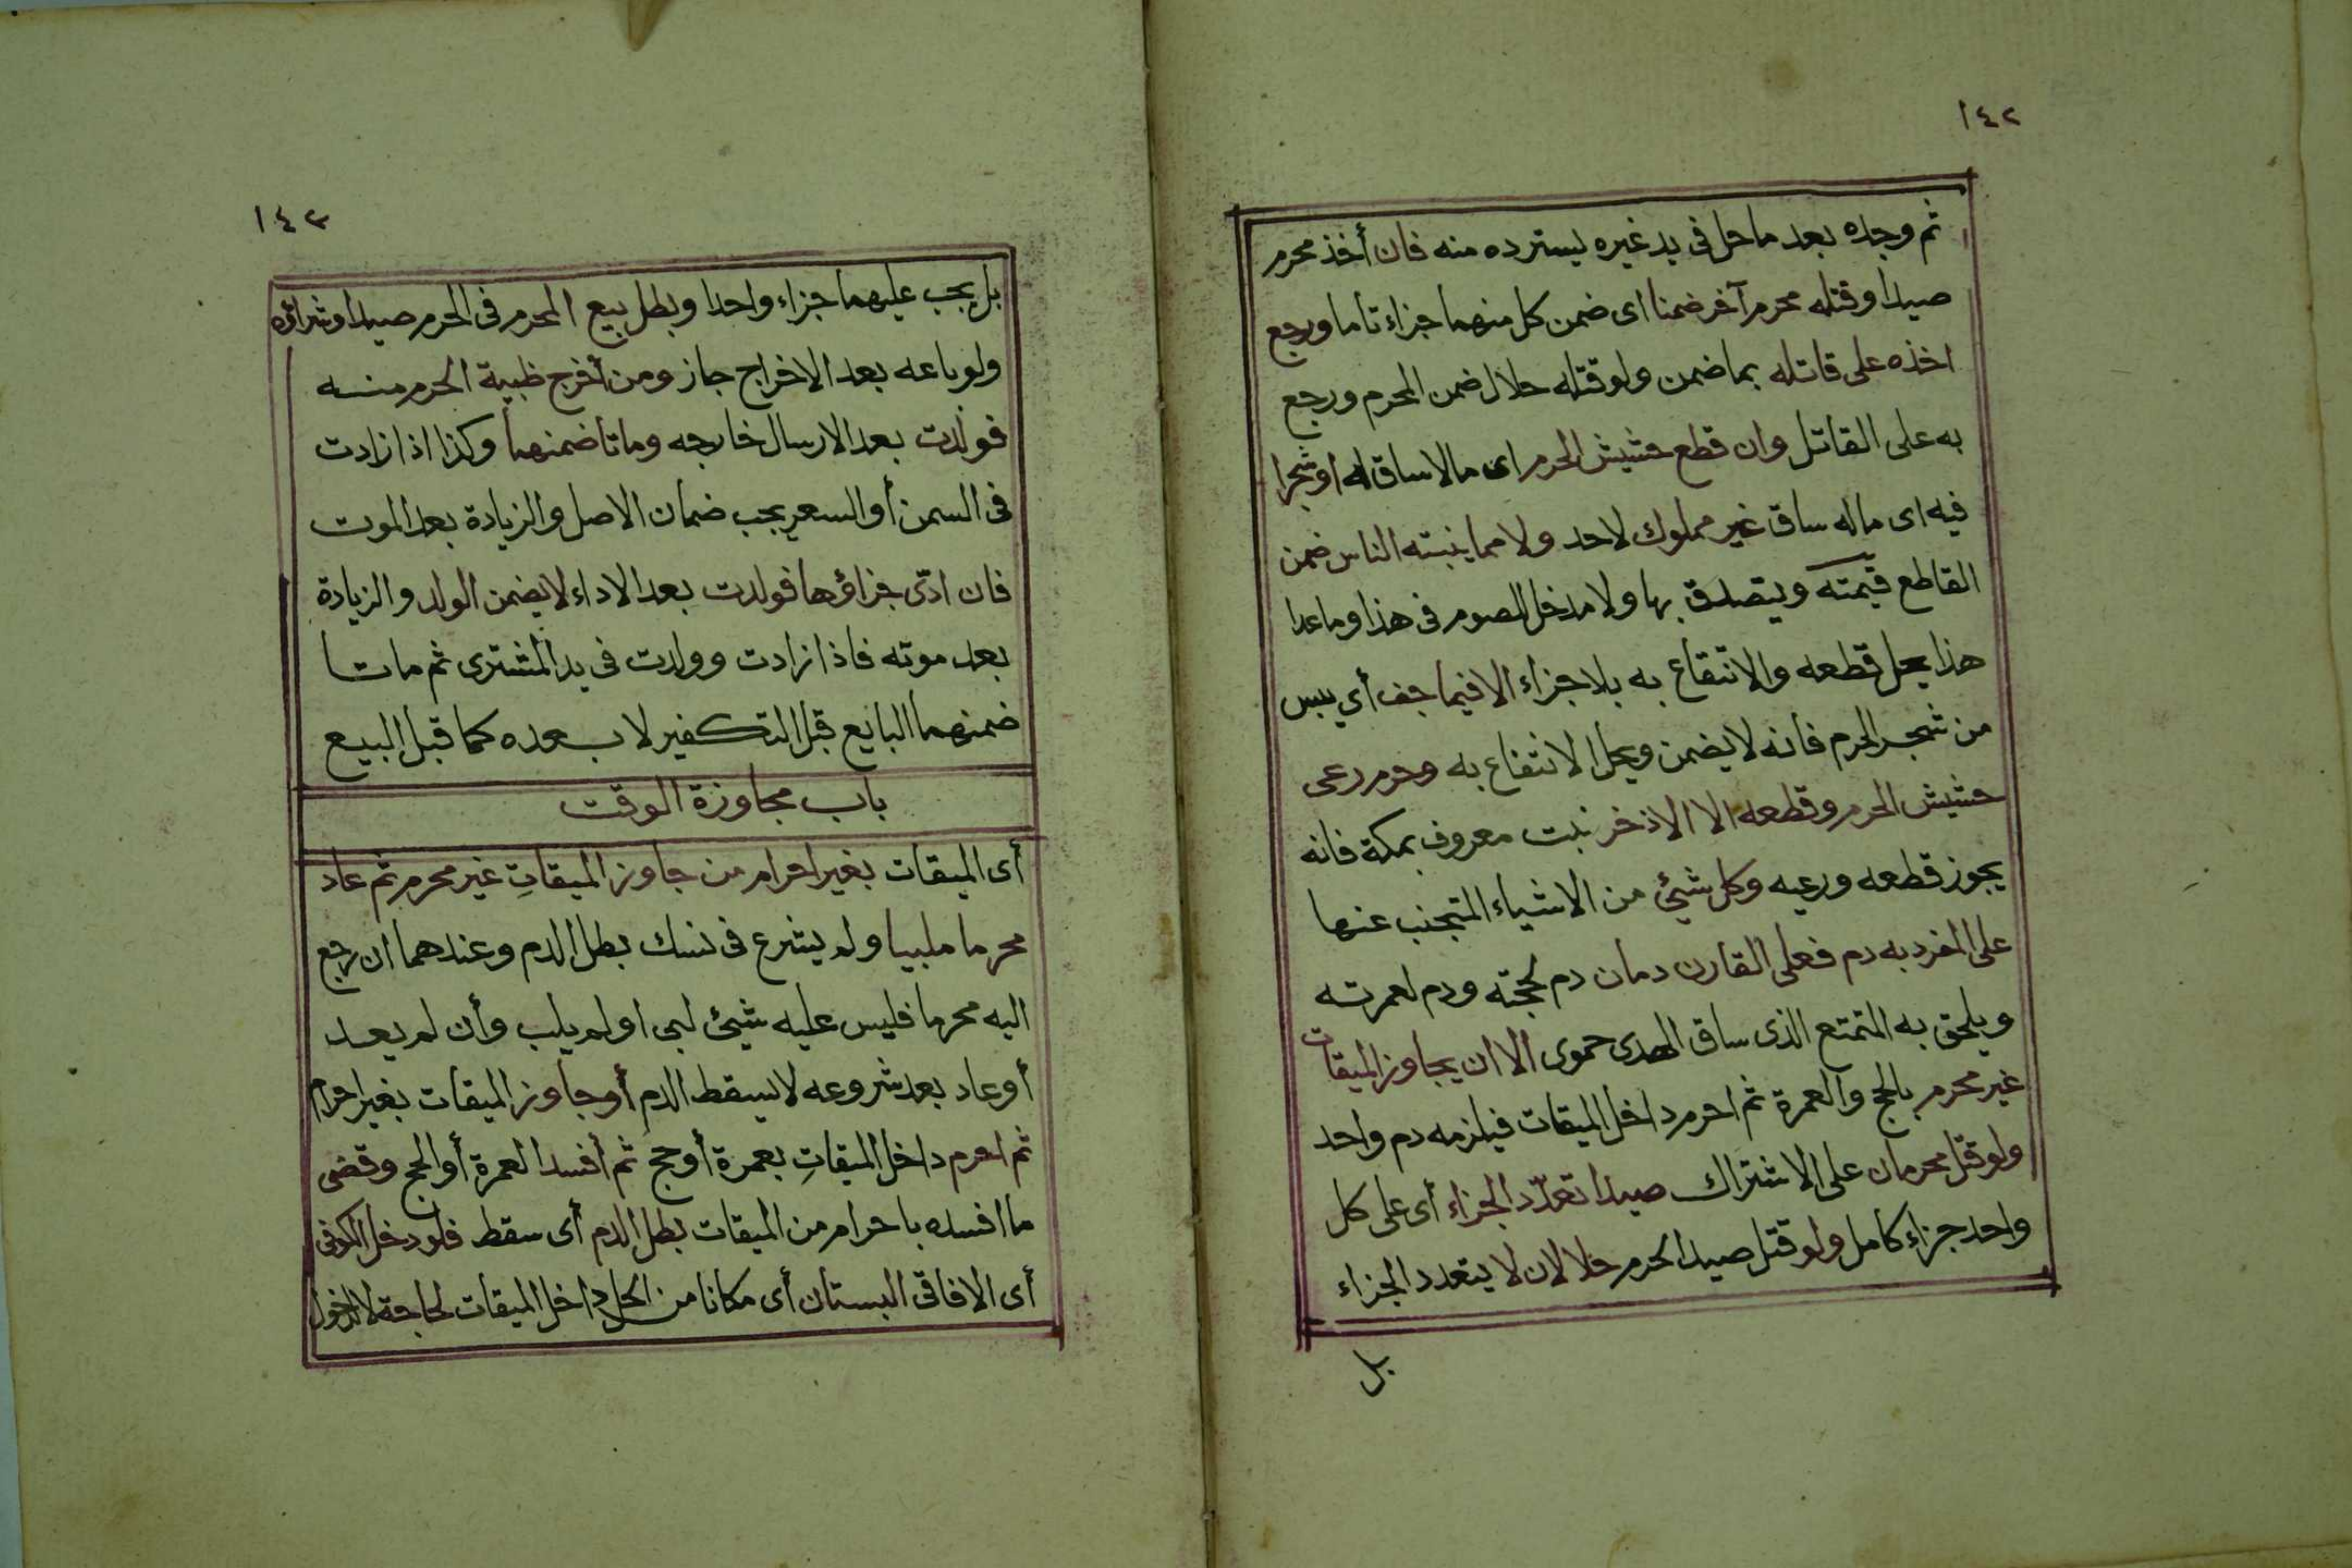 ١٤٢
ثم وجده بعد ما حل فى يد غيره يسترده منه فان أخذ محرم
صيدا وقتله محرم آخر ضمنا اى ضمن كل منهما جزاء تاما ورجع
اخذه على قاتله بما ضمن ولو قتله حلال ضمن المحرم ورجع
به على القاتل وان قطع حشيش الحرم اى مالا ساق له او شجرا
فيه اى ماله ساق غير مملوك لاحد ولا مما ينبته الناس ضمن
القاطع قيمته ويتصدق بها ولا مدخل للصوم فى هذا وما عدا
هذا يحل قطعه والانتفاع به بلا جزاء الا فيما جف أي يبس
من شجر الحرم فانه لا يضمن ويحل الانتفاع به وحرم رعى
حشيش الحرم وقطعه الا الاذخر نبت معروف بمكة فانه
يجوز قطعه ورعيه وكل شيئ من الاشياء المتجنب عنها
على المفرد به دم فعلى القارن دمان دم لحجته ودم لعمرته
ويلحق به المتمتع الذى ساق الهدى حموى الا ان يجاوز الميقات
غير محرم بالحج والعمرة ثم احرم داخل الميقات فيلزمه دم واحد
ولو قتل محرمان على الاشتراك صيدا تعدد الجزاء أى على كل
واحد جزاء كامل ولو قتل صيد الحرم حلالان لا يتعدد الجزاء
بل
١٤٣
بل يجب عليهما جزاء واحدا وبطل بيع المحرم فى الحرم صيدا وشرائه
ولو باعه بعد الاخراج جاز ومن أخرج ظبية الحرم منه
فولدت بعد الارسال خارجه وماتا ضمنهما وكذا اذا زادت
فى السمن أو السعر يجب ضمان الاصل والزيادة بعد الموت
فان ادّى جزاؤها فولدت بعد الاداء لا يضمن الولد والزيادة
بعد موته فاذا زادت وولدت فى يد المشترى ثم ماتا
ضمنهما البايع قبل التكفير لا بعده كما قبل البيع
باب مجاوزة الوقت
أى الميقات بغير احرام من جاوز الميقاتِ غير محرم ثم عاد
محرما ملبيا ولم يشرع فى نسك بطل الدم وعندهما ان رجع
اليه محرما فليس عليه شيئ لبى او لم يلب وأن لم يعد
أو عاد بعد شروعه لا يسقط الدم أو جاوز الميقات بغير احرام
ثم احرم داخل الميقاتِ بعمرة أو حج ثم أفسد العمرة أو الحج وقضى
ما افسده باحرام من الميقات بطل الدم أى سقط فلو دخل الكوفى
أى الافاقى البستان أى مكانا من الحل داخل الميقات لحاجة لا لدخول